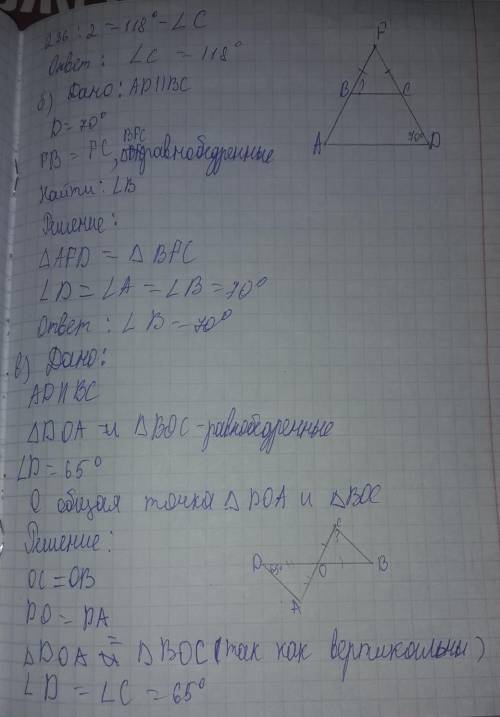 236 : 2 = 118° - ∠C
Ответ: ∠C = 118°
б) Дано: AD||BC
D = 70°
PB = PC, BPC равнобедренные
Найти: ∠B
Решение:
△APD = △BPC
∠D = ∠A = ∠B = 70°
Ответ: ∠B = 70°
P
B
1
C
A
70°
D
в) Дано:
AD||BC
△DOA и △BOC - равнобедренные
∠D = 65°
O общая точка △DOA и △BOC
Решение:
OC = OB
DO = DA
△DOA = △BOC (так как вертикальны)
∠D = ∠C = 65°
C
?
D
65°
O
B
A